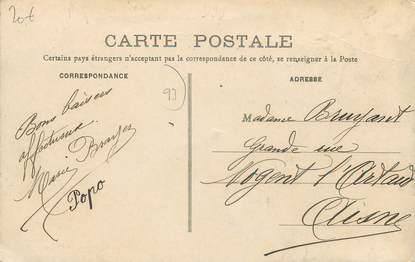 20€
CARTE POSTALE
Certains pays étrangers n'acceptant pas la correspondance de ce côté, se renseigner à la Poste
CORRESPONDANCE
ADRESSE
93
Bons baisers
affectueux
Marie
Popo
Madame Bruyant
Grande rue
Nogent l'Artaud
Aisne